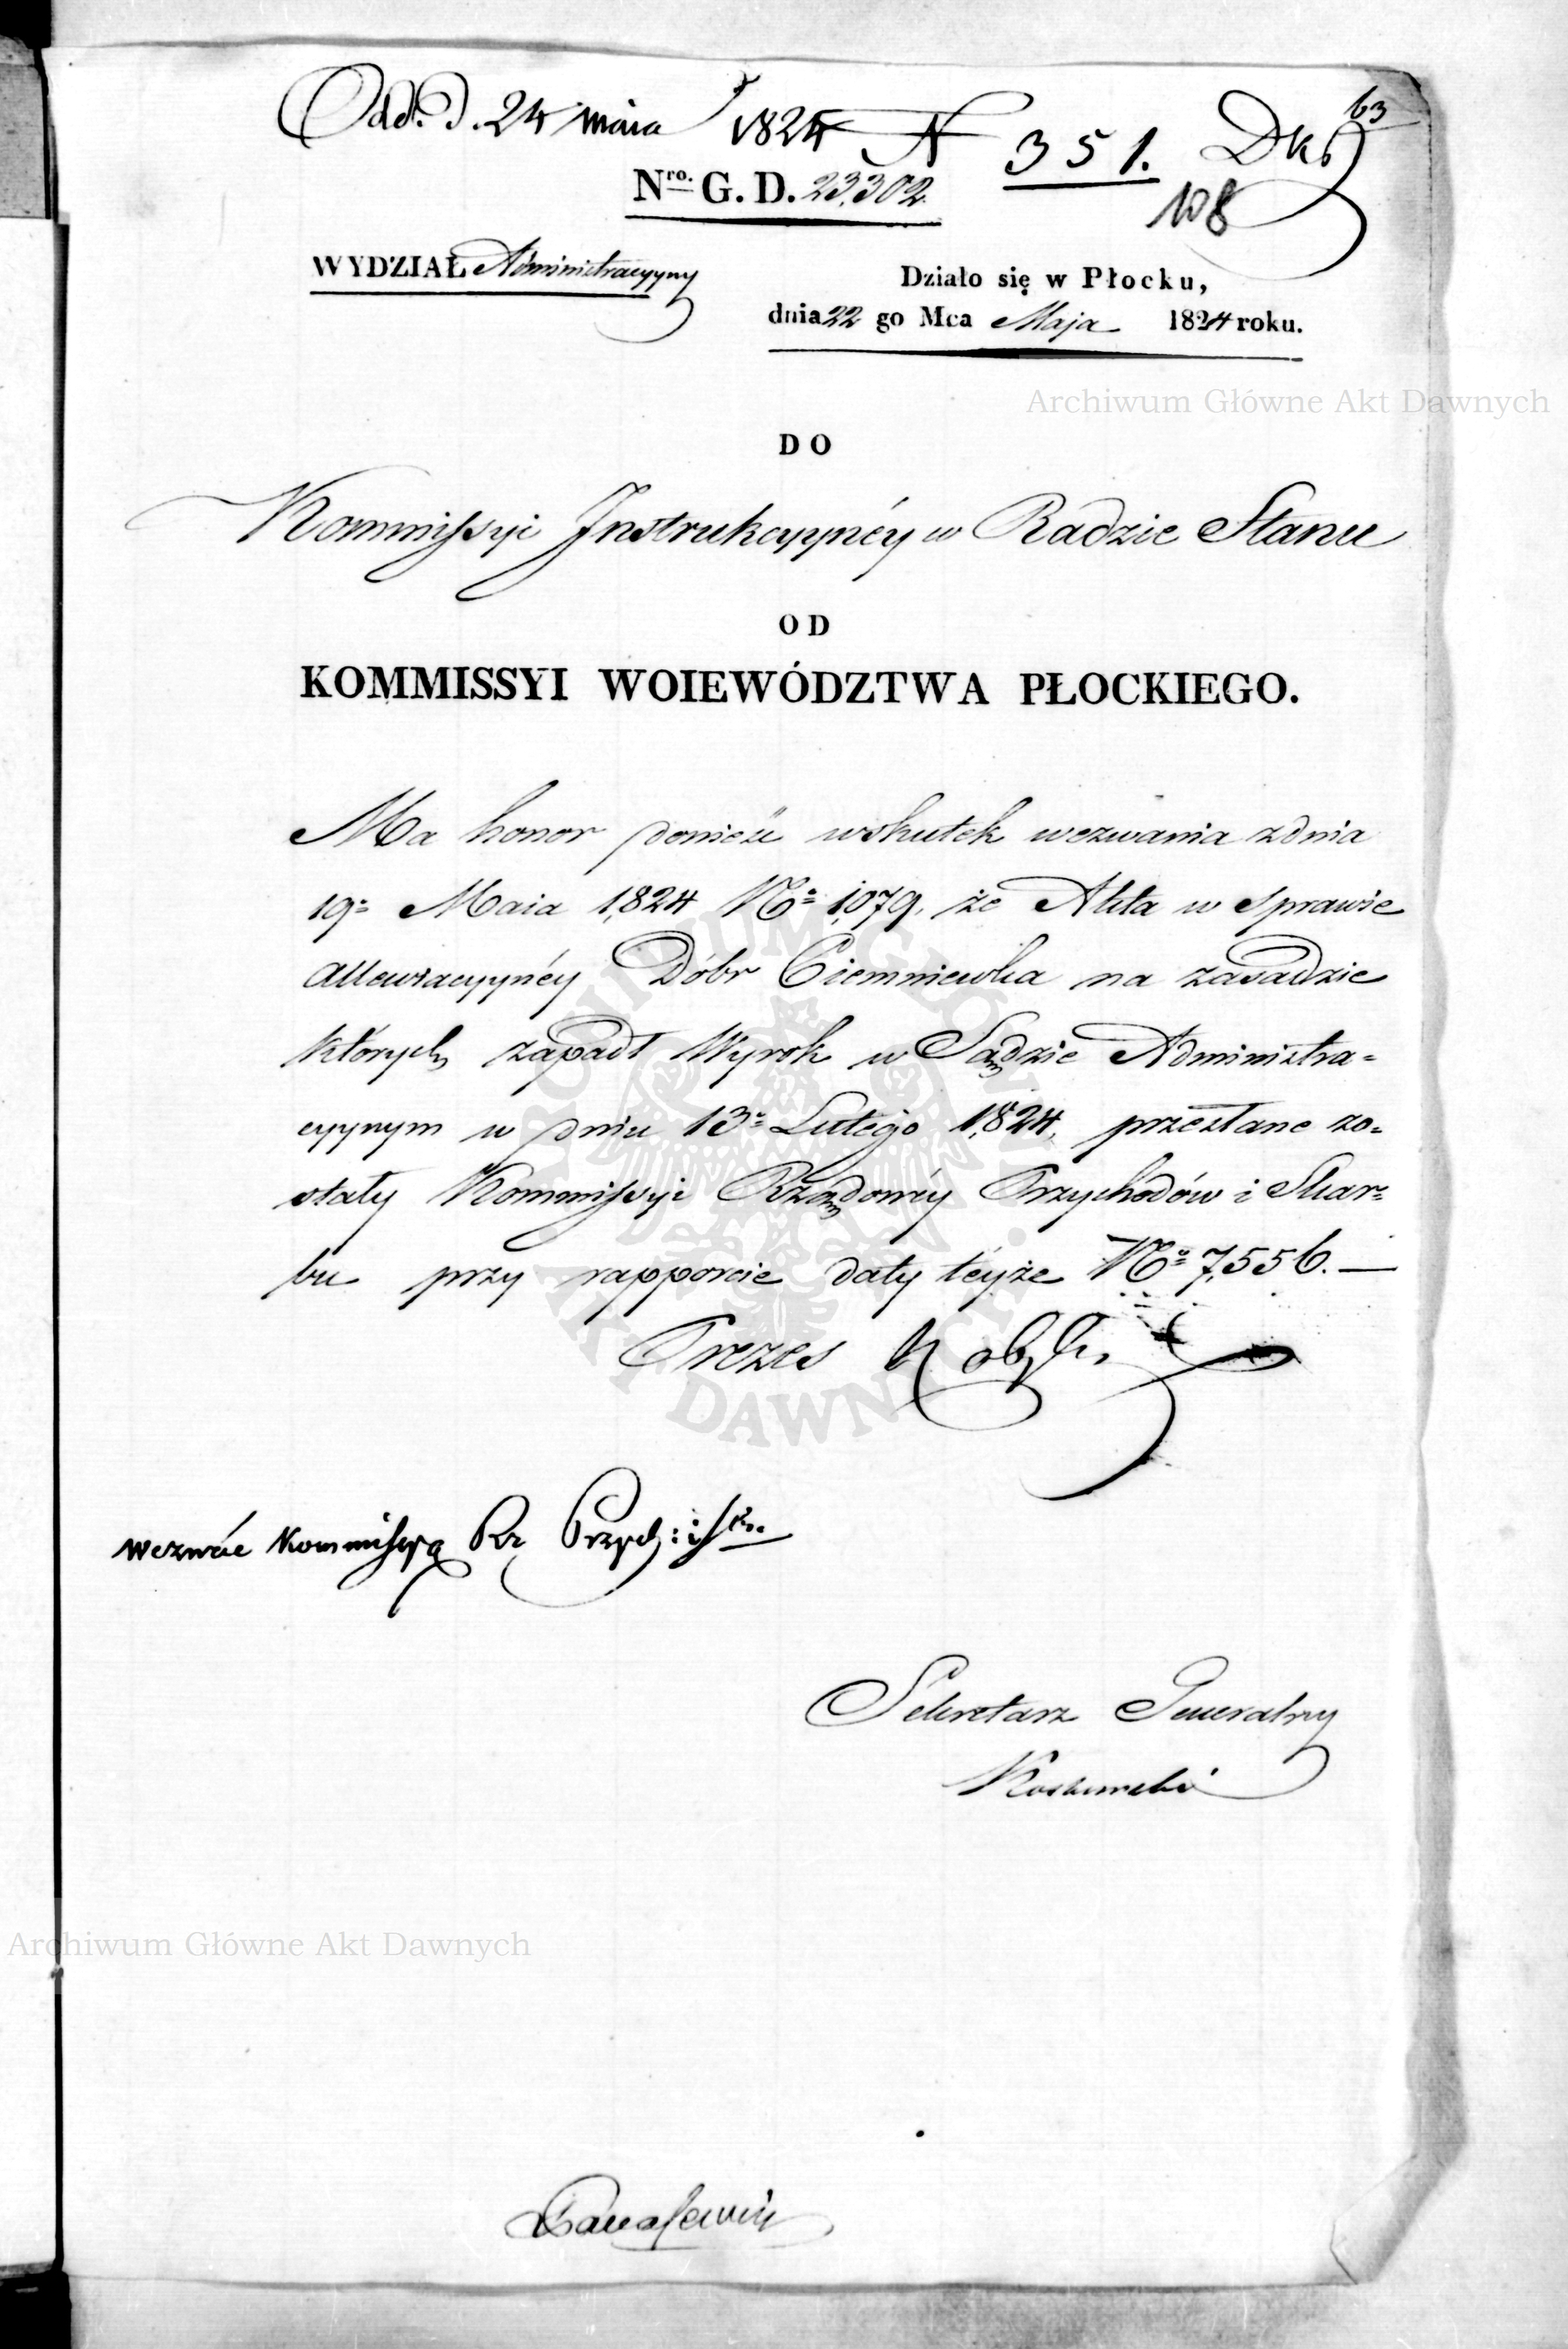 Odd. d. 24 maia 1824 N 351. Dks
63
108
Nro. G. D. 23,302.
WYDZIAŁ Administracyyny
Działo się w Płocku,
dnia 22 go Mca Maja 1824 roku.
Archiwum Główne Akt Dawnych
DO
Kommissyi Instrukcyynéy w Radzie Stanu
OD
KOMMISSYI WOIEWÓDZTWA PŁOCKIEGO.
Ma honor donieść wskutek wezwania z dnia
19o Maia 1,824 No 1,079. że Akta w Sprawie
Allewiacyynéy Dóbr Ciemniewka na zasadzie
których zapadł Wyrok w Sądzie Administra=
cyynym w dniu 13o Lutego 1,824, przesłane zo=
stały Kommissyi Rządowéy Przychodów i Skar=
bu przy rapporcie daty téyże No 7,556. —
Prezes
wezwać Kommissyą Rz Przych: i Sk.
Sekretarz Generalny
Archiwum Główne Akt Dawnych